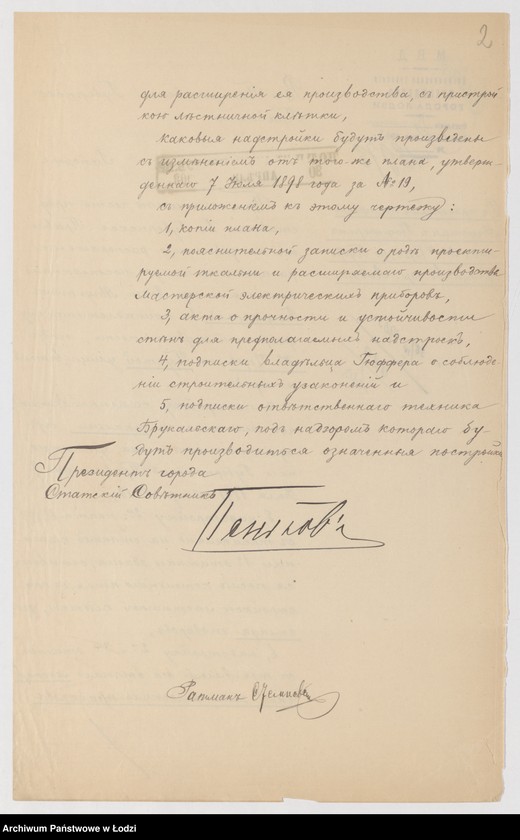 2
для расширенія ея производства, съ пристрой
кою лѣстничной клѣтки,
каковыя надстройки будутъ произведены
съ измѣненіемъ отъ того-же плана, утверж
деннаго 7 Іюля 1898 года за № 19,
съ приложеніемъ къ этому чертежу:
1, копіи плана,
2, пояснительной записки о родѣ проекти-
руемой ткальни и расширяемаго производства
Мастерской электрическихъ приборовъ,
3, акта о прочности и устойчивости
стѣнъ для предполагаемыхъ надстроекъ,
4, подписки владѣльца Гюффера о соблюде-
ніи строительныхъ узаконеній и
5, подписки отвѣтственнаго техника
Брукалескаго, подъ надзоромъ котораго бу
дутъ производиться означенныя постройки
Президентъ города
Статскій Совѣтникъ
Ратманъ
Archiwum Państwowe w Łodzi